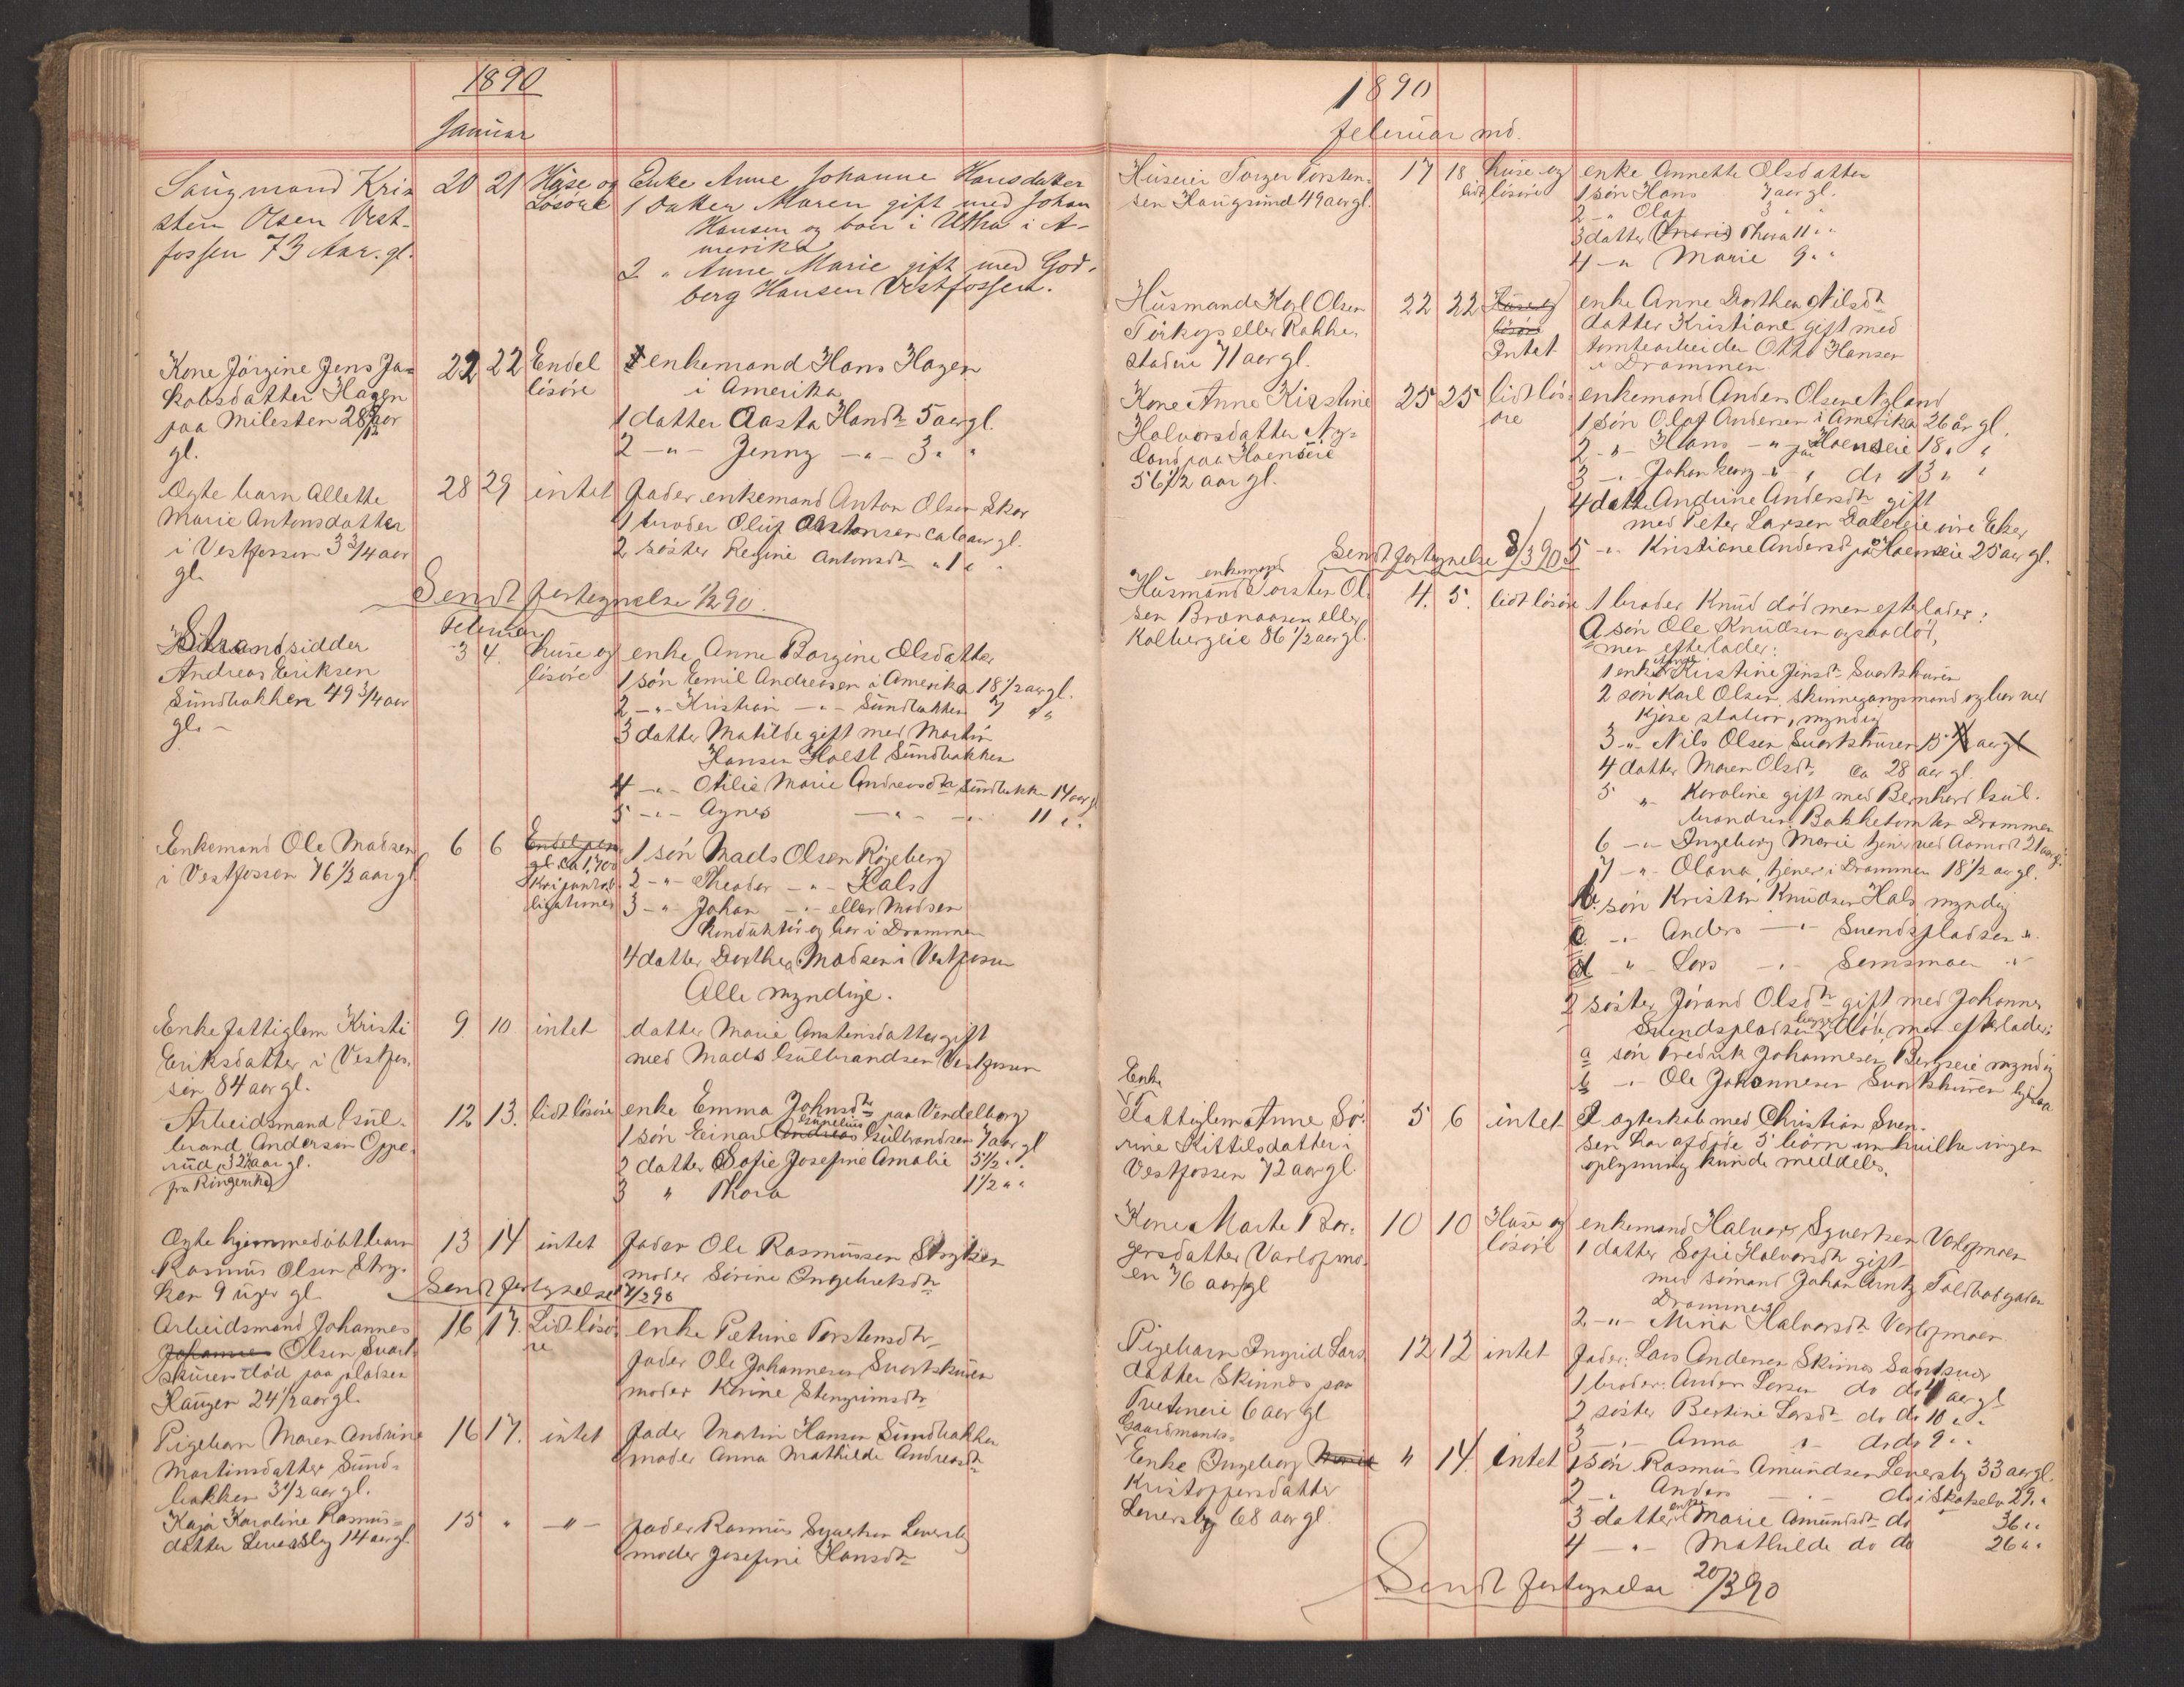 1890
Januar
Saugmand Kris
sten Olsen Vest-
fossen 73 Aar. gl.
20 21 Huse og
Løsøre
Enke Anne Johanne Hansdatter
1 Datter Maren gift med Johan
Hansen og boer i Utha i A-
merika
2 " Anne Marie gift med God-
berg Hansen Vestfossen.
Kone Jørgine Jens Ja=
kobsdatter Hagen
paa Milesten 28 aar
gl.
22 22 Endel
løsøre
enkemand Hans Hagen
i Amerika
1 datter Aasta Hansdr 5 aar gl.
2 -"- Jenny -"- 3 " "
Ægte barn Allette
Marie Antonsdatter
i Vestfossen 3 3/4 aar
gl.
28 29 intet
Fader enkemand Anton Olsen Skar
1 broder Oluf Antonsen ca 6 aar gl.
2 søster Regine Antonsdr " 1 " "
Sendt fortegnelse 1/2 90.
Februar
Strandsidder
Andreas Eriksen
Sundbakken 49 3/4 aar
gl. -
3 4. huse og
løsøre
enke Anne Borgine Olsdatter
1 søn Emil Andreasen i Amerika 18 1/2 aar gl.
2 -"- Kristian -"- Sundbakken 7 " "
3 datter Matilde gift med Martin
Hansen Holtt Sundbakken
4 -"- Otilie Marie Andreasdr Sundbakken 14 aar gl
5 -"- Agnes -"- -"- 11 " "
Enkemand Ole Madsen
i Vestfossen 76 1/2 aar gl.
6 6 Endel pen
gl. ca 1,700
Kr i pantob
ligationer
1 søn Mads Olsen Røgeberg
2 -"- Theodor -"- Hals
3 -"- Johan -"- eller Madsen
Konduktør og bor i Drammen
4 datter Dorthea Madsen i Vestfossen
Alle myndige.
Enke Fattiglem Kristi
Eriksdatter i Vestfos.
sen 84 aar gl.
9. 10 intet
datter Marie Anstensdatter gift
med Mads Gulbrandsen Vestfossen
Arbeidsmand Gul-
brand Andersen Oppe.
rud, 32 1/2 aar gl.
fra Ringerike
12 13. lidt løsøre
enke Emma Johnsdr paa Vendelborg
1 søn Einar Andreas Gulbrandsen 7 aar gl
2 datter Sofie Josefine Amalie 5 1/2 " "
3 " Thora 1 1/2 " "
Ægte hjemmedøbt barn
Rasmus Olsen Stry-
ken 9 uger gl.
13 14 intet
Fader Ole Rasmussen Stryken
moder Sørine Ingebretsdr
Sendt fortegnelse 17/2 90
Arbeidsmand Johannes
Johannes Olsen Svart
skuren død paa pladsen
Haugen 24 1/2 aar gl.
16 17. Lidt løsø
re
enke Petrine Torstensdr
fader Ole Johannesen Svartskuren
moder Karine Stengrimsdr
Pigebarn Maren Andrine
Martinsdatter Sund-
bakken 3 1/2 aar gl.
16 17. intet
fader Martin Hansen Sundbakken
moder Anna Mathilde Andreasdr
Kaja Karoline Rasmus=
datter Leversby 14 aar gl.
15 " -"-
fader Rasmus Syvertsen Leversby
moder Josefine Hansdr
1890
februar md.
Huseier Torger Torsten=
sen Haugsund 49 aar gl.
17 18 huse og
lidt løsøre
enke Annette Olsdatter
1 søn Hans 7 aar gl.
2 -" Olaf 3 " "
3 datter (Marie) Thora 11 " "
4 -" Marie 9 " "
Husmand Karl Olsen
Tørkop eller Rakke
stadeie 71 aar gl.
22 22 Huse og
løsøre
Intet
enke Anne Dorthea Nilsdr
datter Kristiane gift med
tomtearbeider Otto Hansen
i Drammen
Kone Anne Kirstine
Halvorsdatter Ny=
land paa Hoenseie
56 1/2 aar gl.
25 25 lidt løs
øre
enkemand Anders Olsen Nyland
1 søn Olaf Andersen i Amerika 26 år gl.
2 -"- Hans -"- paa Hoenseie 18 " "
3 -" Johan Georg -"- " do 13 " "
4 datter Andrine Andersdr gift
med Peter Larsen Dalereie øvre Eker
5 -" Kristiane Andersd paa Hoenseie 25 aar gl.
Sendt fortegnelse 8/3 90
enkemand
Husmand Torsten Ol-
sen Brænaasen eller
Kolbergeie 86 1/2 aar gl.
4. 5. lidt løsøre
1 broder Knud død men efterlader:
a søn Ole Knudsen ogsaa død,
men efterlader:
1 enke Anne Kirstine Jensdr Svartskuren
2 søn Karl Olsen skinnegangsmand og bor ved
Kjøse station, myndig
3 -"- Nils Olsen Svartskuren 15 1/2 aar gl
4 datter Maren Olsdr ca 28 aar gl.
5 " Karoline gift med Bernhard Gul.
brandsen Bakketomten Drammen
6 -"- Ingeborg Marie tjener ved Aamot 21 aar gl.
7 -"- Olava, tjener i Drammen 18 1/2 aar gl.
b. søn Kristen Knudsen Hals myndig
c. -"- Anders -"- Svendspladsen ".
d -"- Lars -"- Semsmoen -"
2 søster Jørand Olsdr gift med Johannes
Svendspladsen begge døde, men efterlader:
a søn Fredrik Johannesen Bergseie myndig
b -"- Ole Johannesen Svartskuren ligesaa
Enke
Fattiglem Anne Sø-
rine Kittilsdatter i
Vestfossen 72 aar gl
5 6 intet
I ægteskab med Christian Sven-
sen har afdøde 5 børn om hvilke ingen
oplysning kunde meddeles.
Kone Marte Bor-
gersdatter Varlopmo-
en 76 aar gl
10 10 Huse og
løsøre
enkemand Halvor Syvertsen Varlopmoen
1 datter Sofie Halvorsdr gift
med sømand Johan Arntz Toldbodgaden
Drammen
2 -"- Mina Halvorsdr Varlopmoen
Pigebarn Ingrid Lars
datter Skinnes paa
Tveteneie 6 aar gl
12 12 intet
Fader: Lars Andersen Skinnes Sandsvær
1 broder: Anders Larsen do do 4 aar gl
2 søster Bertine Larsdr do do 10 " "
3 -"- Anna " do do 9 " "
Gaardmands=
Enke Ingeborg Marie
Kristoffersdatter
Leversby 68 aar gl.
" 14. intet
1 søn Rasmus Amundsen Leversby 33 aar gl.
2 -" Anders -"- do i Skotselv 29 " "
3 datter enke Marie Amundsdr do 36 " "
4 -"- Mathilde do do 26 " "
Sendt fortegnelse 20/3 90